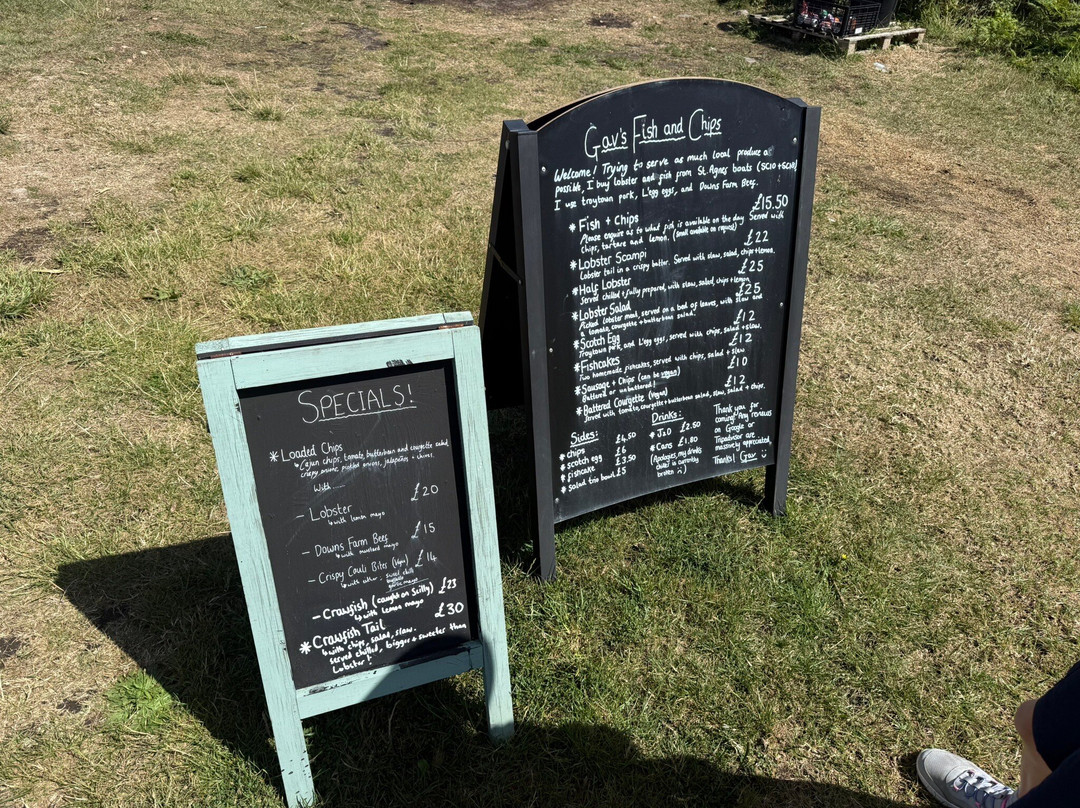 SPECIALS!
* Loaded Chips
↳ Cajun chips, tomato, butterbean and courgette salad,
crispy onions, pickled onions, jalapeños + chives.
With .....
£20
- Lobster
↳ with lemon mayo
£15
- Downs Farm Beef
↳ with mustard mayo
- Crispy Cauli Bites (Vegan) £14
↳ with either: sweet chilli
garlic mayo
- Crawfish (caught on Scilly) £23
↳ with lemon mayo
* Crawfish Tail £30
↳ with chips, salad, slaw.
served chilled, bigger + sweeter than
Lobster!
Gav's Fish and Chips
Welcome! Trying to serve as much local produce a
possible, I buy lobster and fish from St. Agnes boats (SC10 + SC10)
I use troytown pork, L'egg eggs, and Downs Farm Beef.
£15.50
* Fish + Chips
Please enquire as to what fish is available on the day. Served with
chips, tartare and lemon. (small available on request)
£22
* Lobster Scampi
Lobster tail in a crispy batter. Served with slaw, salad, chips + lemon.
£25
* Half Lobster
Served chilled + fully prepared, with slaw, salad, chips + lemon
£25
* Lobster Salad
Picked lobster meat, served on a bed of leaves, with slaw and
a tomato, courgette + butterbean salad.
£12
* Scotch Egg
Troytown pork, and L'egg eggs, served with chips, salad + slaw.
£12
* Fishcakes
Two homemade fishcakes, served with chips, salad + slaw
£10
* Sausage + Chips (can be vegan)
Battered or unbattered!
£12
* Battered Courgette (Vegan)
Served with tomato, courgette + butterbean salad, slaw, salad + chips.
Sides:
* chips £4.50
* scotch egg £6
* fishcake £3.50
* salad trio bowl £5
Drinks:
* J2O £2.50
* Cans £1.80
(Apologies, my drinks
chiller is currently
broken :-)
Thank you for
coming! Any reviews
on Google or
Tripadvisor are
massively appreciated,
Thanks! Gav